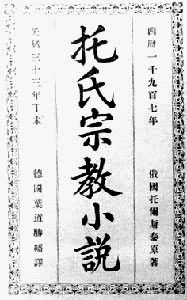 西曆一千九百七年
俄國托爾斯泰著
托氏宗教小說
光緒三十三年丁未
德國葉道勝繙譯